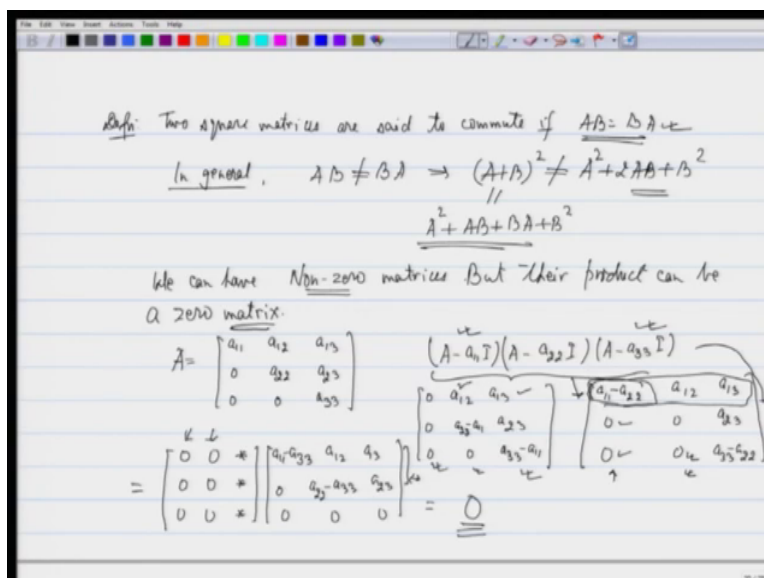 File Edit View Insert Actions Tools Help
Defn: Two square matrices are said to commute if AB = BA
In general, AB ≠ BA → (A+B)² ≠ A² + 2AB + B²
//
A² + AB + BA + B²
We can have Non-zero matrices But their product can be
a zero matrix.
A = [a₁₁ a₁₂ a₁₃; 0 a₂₂ a₂₃; 0 0 a₃₃]
(A - a₁₁I)(A - a₂₂I)(A - a₃₃I)
[0 a₁₂ a₁₃; 0 a₂₂-a₁₁ a₂₃; 0 0 a₃₃-a₁₁] [a₁₁-a₂₂ a₁₂ a₁₃; 0 0 a₂₃; 0 0 a₃₃-a₂₂]
= [0 0 *; 0 0 *; 0 0 *] [a₁₁-a₃₃ a₁₂ a₁₃; 0 a₂₂-a₃₃ a₂₃; 0 0 0] = 0